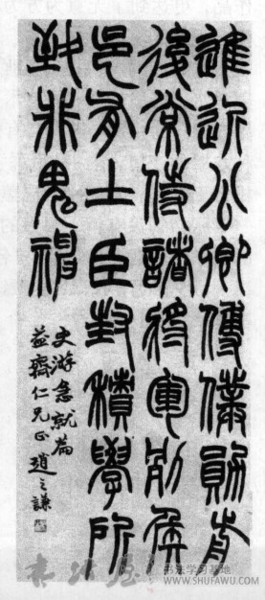 進近公卿傅僕勛前
後常侍諸將軍列侯
邑有土臣封積學所
致非鬼神
史游急就篇
益齋仁兄正趙之謙
书法学习基地
WWW.SHUFAWU.COM